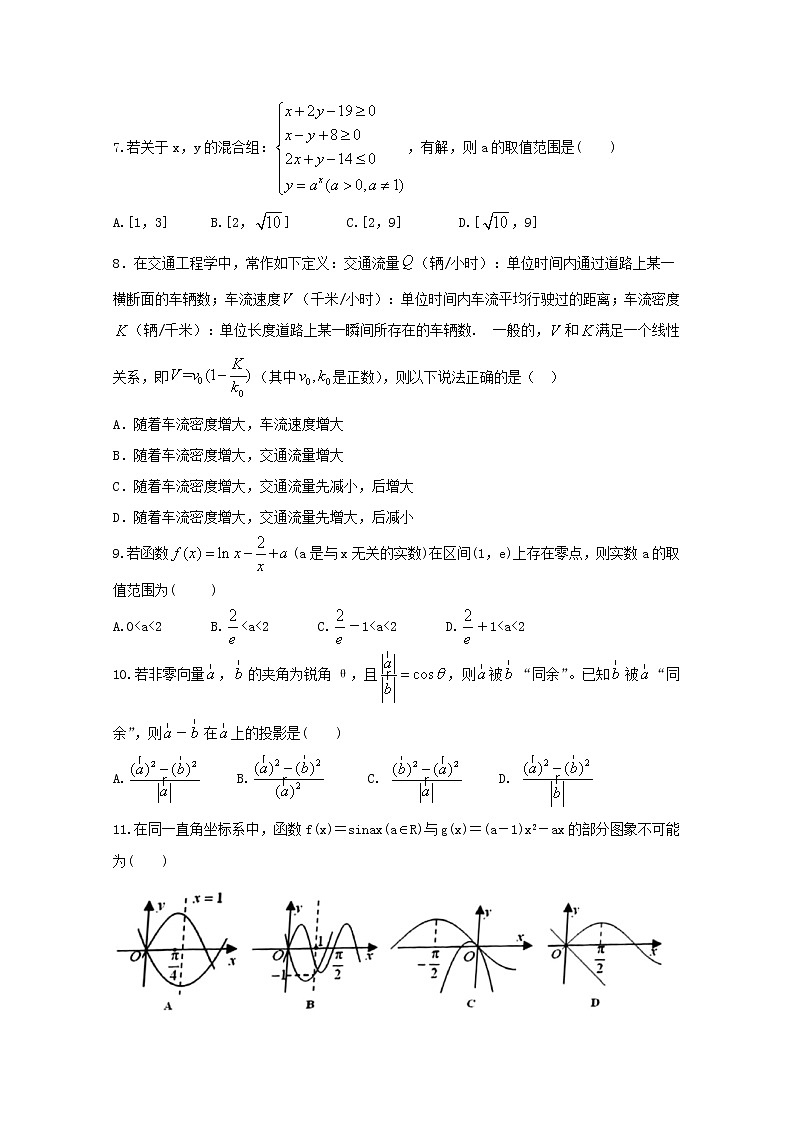 x+2y−19≥0
x−y+8≥0
7.若关于x,y的混合组: ,有解,则a的取值范围是(　　)
2x+y−14≤0
y=aˣ(a>0,a≠1)
A.[1,3]　　B.[2,√10]　　C.[2,9]　　D.[√10,9]
8.在交通工程学中,常作如下定义:交通流量Q(辆/小时):单位时间内通过道路上某一
横断面的车辆数;车流速度V(千米/小时):单位时间内车流平均行驶过的距离;车流密度
K(辆/千米):单位长度道路上某一瞬间所存在的车辆数. 一般的,V和K满足一个线性
关系,即V=v₀(1−K/k₀)(其中v₀,k₀是正数),则以下说法正确的是(　)
A.随着车流密度增大,车流速度增大
B.随着车流密度增大,交通流量增大
C.随着车流密度增大,交通流量先减小,后增大
D.随着车流密度增大,交通流量先增大,后减小
9.若函数f(x)=ln x−2/x+a(a是与x无关的实数)在区间(1,e)上存在零点,则实数a的取
值范围为(　　)
A.0<a<2　　B.2/e<a<2　　C.2/e−1<a<2　　D.2/e+1<a<2
10.若非零向量a,b的夹角为锐角θ,且|a|/|b|=cosθ,则a被b“同余”。已知b被a“同
余”,则a−b在a上的投影是(　　)
A.((a)²−(b)²)/|a|　　B.((a)²−(b)²)/(a)²　　C.((b)²−(a)²)/|a|　　D.((a)²−(b)²)/|b|
11.在同一直角坐标系中,函数f(x)=sinax(a∈R)与g(x)=(a−1)x²−ax的部分图象不可能
为(　　)
y x=1 O π/4 x A
y O 1 π/2 x −1 B
y x −π/2 O C
y O π/2 x D